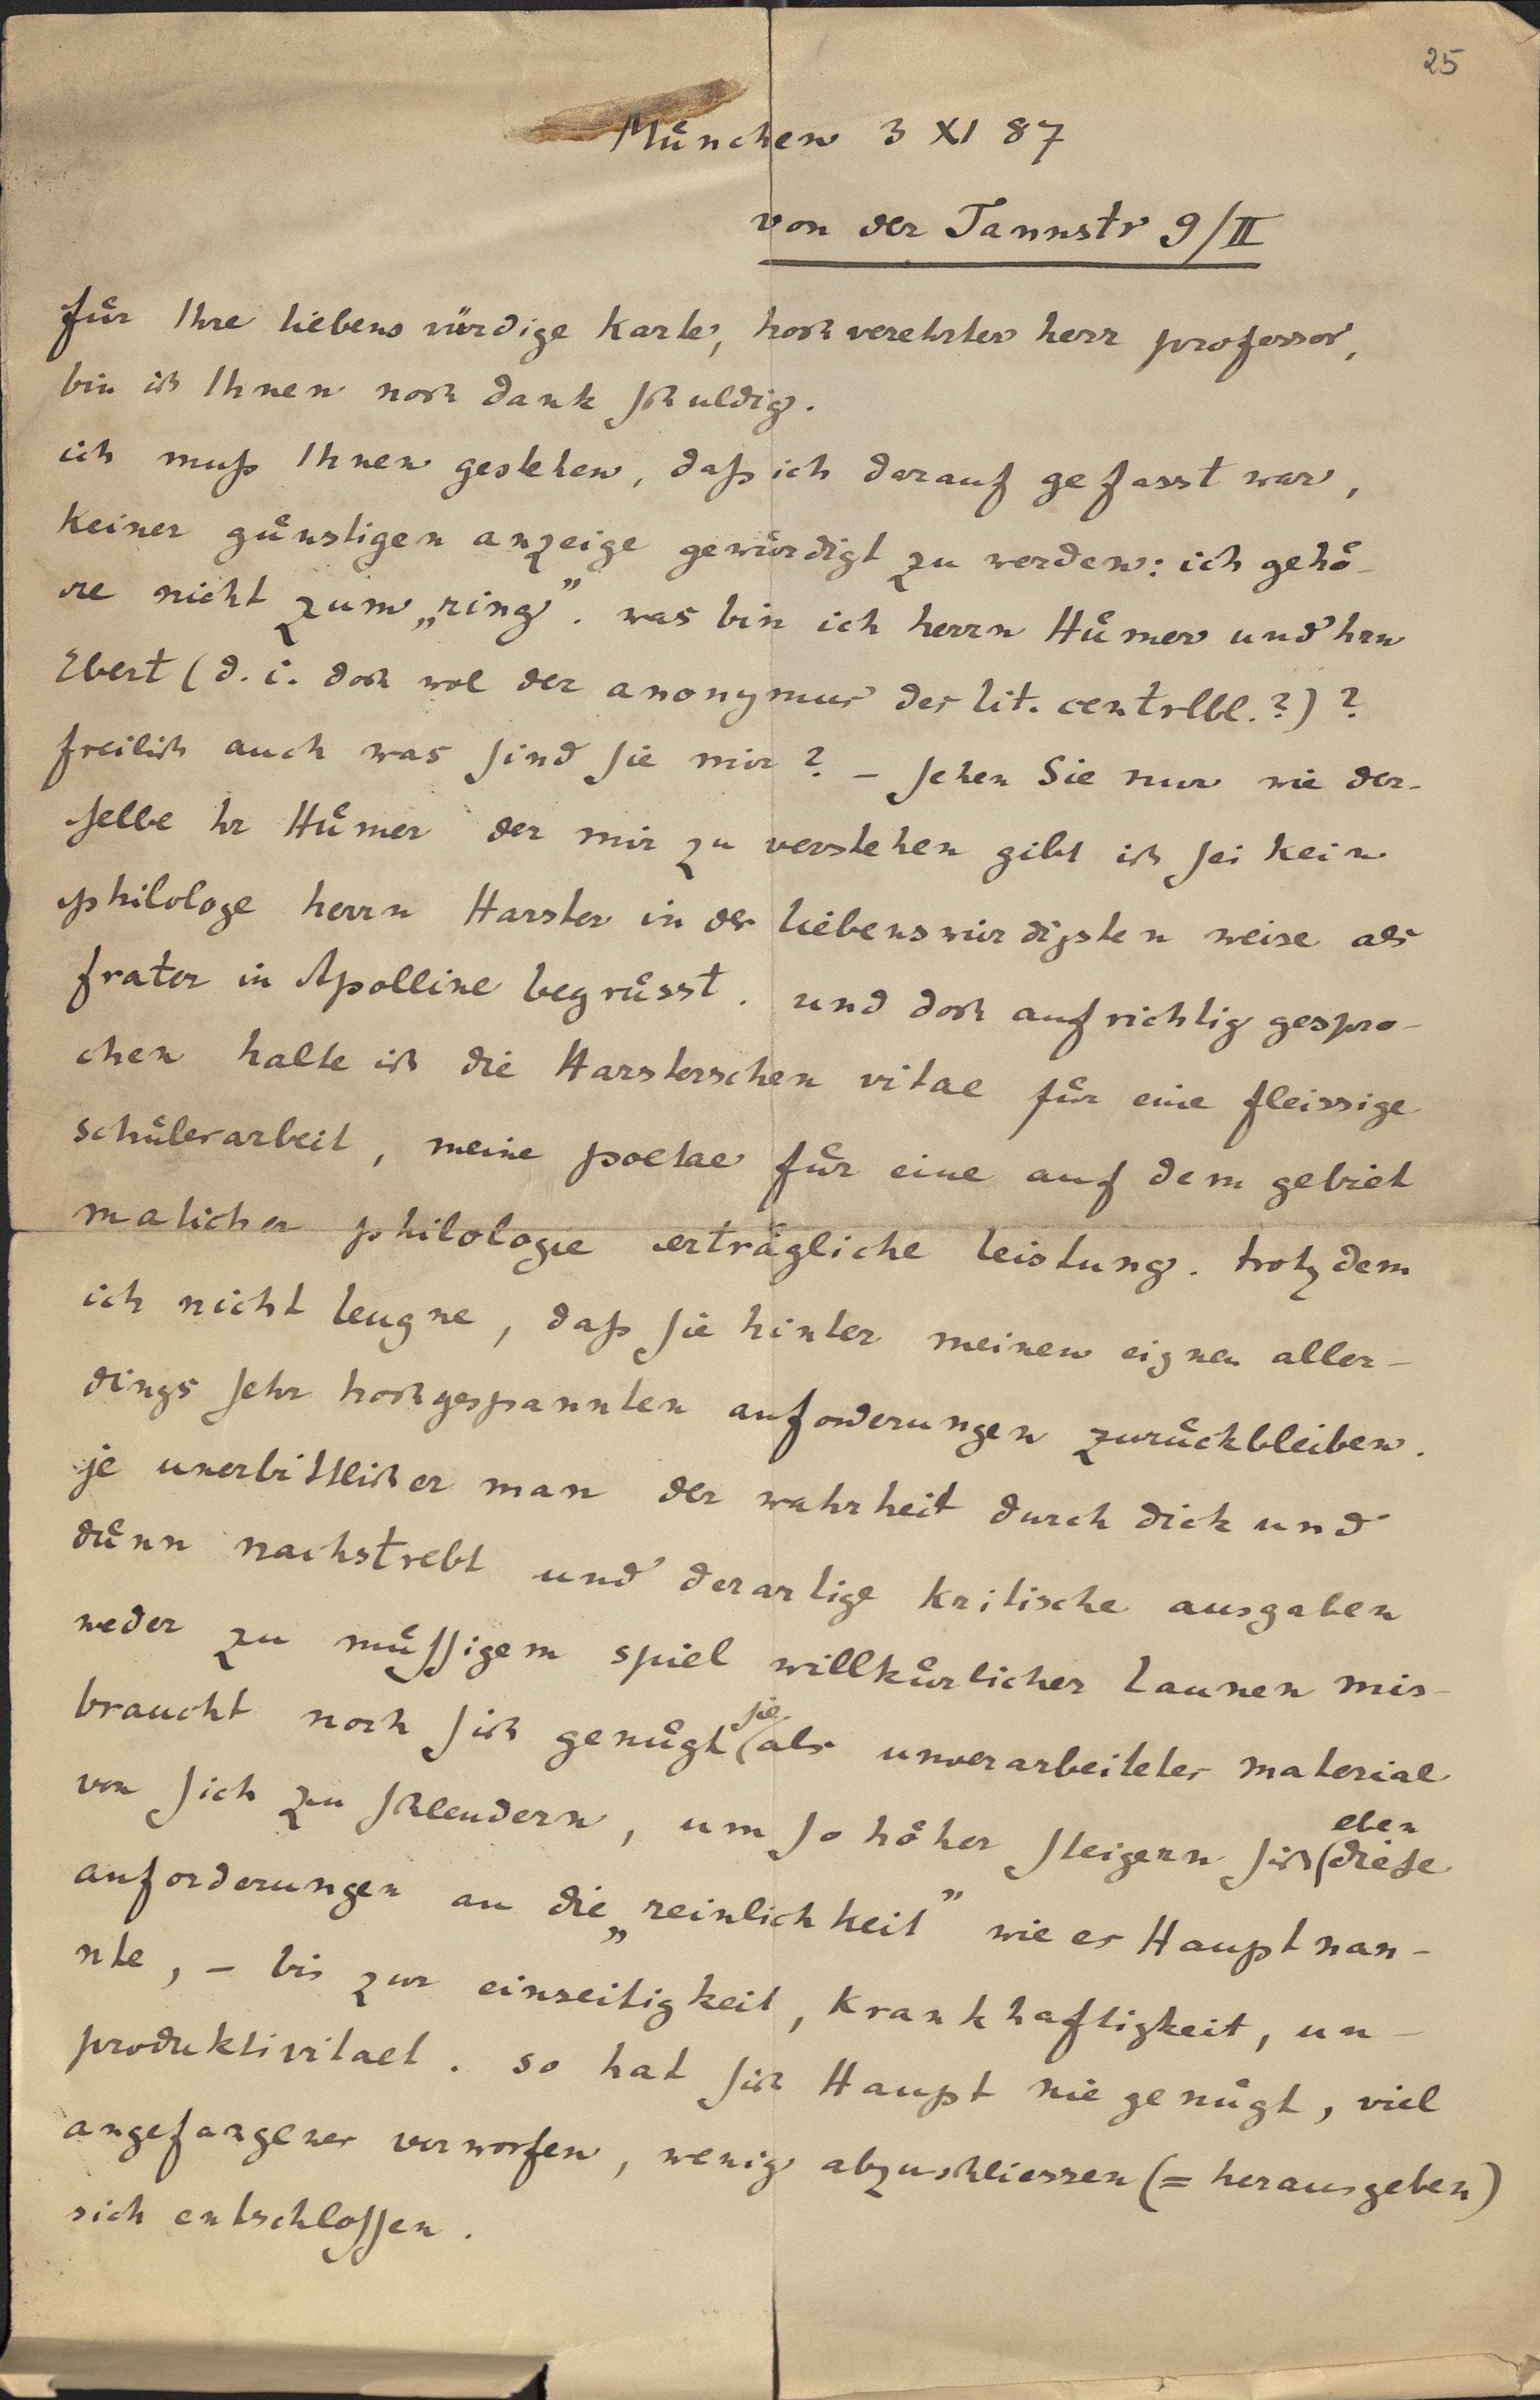 25
München 3 XI 87
von der Tannstr 9/II
für Ihre liebenswürdige karte, hochverehrter herr professor,
bin ich Ihnen noch dank schuldig.
ich muß Ihnen gestehen, daß ich darauf gefasst war,
keiner günstigen anzeige gewürdigt zu werden: ich gehö-
re nicht zum „ring”. was bin ich herrn Hümer und hrn
Ebert (d. i. doch wol der anonymus des lit. centrlbl.?)?
freilich auch was sind sie mir? – sehen Sie nur wie der-
selbe hr Hümer der mir zu verstehen gibt ich sei kein
philologe herrn Harster in der liebenswürdigsten weise als
frater in Apolline begrüsst. und doch aufrichtig gespro-
chen halte ich die Harsterschen vitae für eine fleissige
schülerarbeit, meine poetae für eine auf dem gebiet
malicher philologie erträgliche leistung. trotzdem
ich nicht leugne, daß sie hinter meinen eignen aller-
dings sehr hochgespannten anforderungen zurückbleiben.
je unerbittlicher man der wahrheit durch dick und
dünn nachstrebt und derartige kritische ausgaben
weder zu müssigem spiel willkürlicher launen mis-
braucht noch sich genügt sie als unverarbeitetes material
von sich zu schleudern, um so höher steigern sich eben diese
anforderungen an die „reinlichkeit” wie es Haupt nan-
nte, – bis zur einseitigkeit, krankhaftigkeit, un-
produktivitaet. so hat sich Haupt nie genügt, viel
angefangenes verworfen, wenig abzuschliessen (= herausgeben)
sich entschlossen.